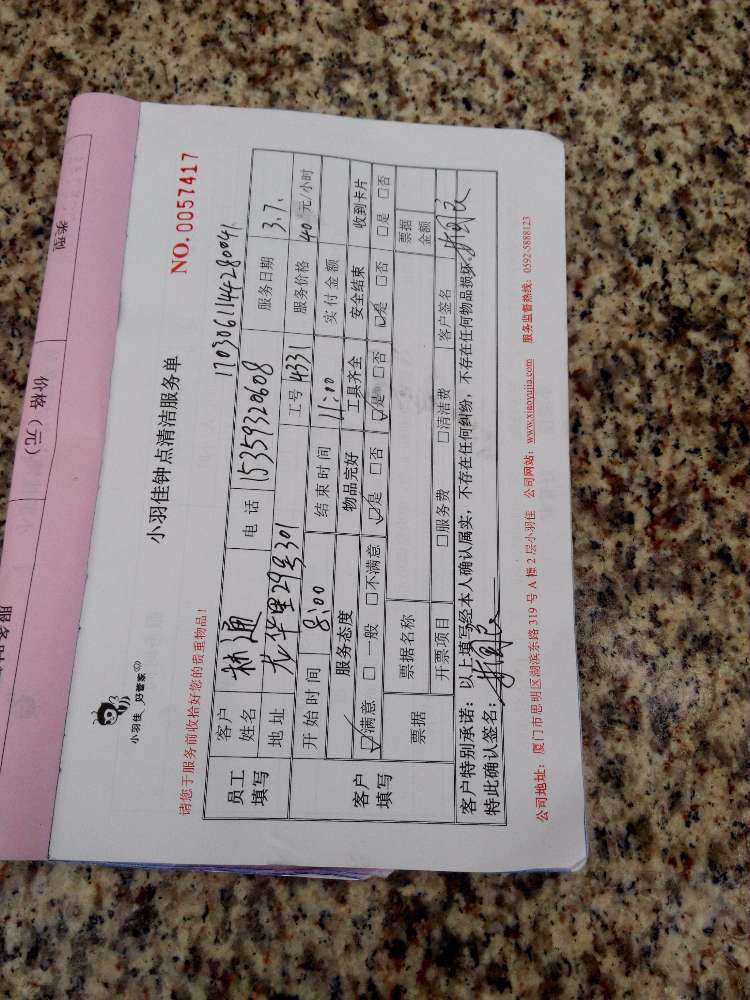 小羽佳 好管家
小羽佳钟点清洁服务单
NO.0057417
请您于服务前收拾好您的贵重物品!
1703061144280041
员工填写 客户姓名 林通 电话 15359320608 服务日期 3.7.
地址 龙华里29号301 工号 4331 服务价格 40元/小时
客户填写 开始时间 8:00 结束时间 11:00 实付金额
服务态度 物品完好 工具齐全 安全结束 收到卡片
☑满意 □一般 □不满意 ☑是 □否 ☑是 □否 ☑是 □否 □是 □否
票据 票据名称 票据金额
开票项目 □服务费 □清洁费 客户签名
客户特别承诺:以上填写经本人确认属实,不存在任何纠纷,不存在任何物品损坏。
特此确认签名:
公司地址:厦门市思明区湖滨东路319号A幢2层小羽佳 公司网站:www.xiaoyujia.com 服务监督热线:0592-5888123
类型
价格(元)